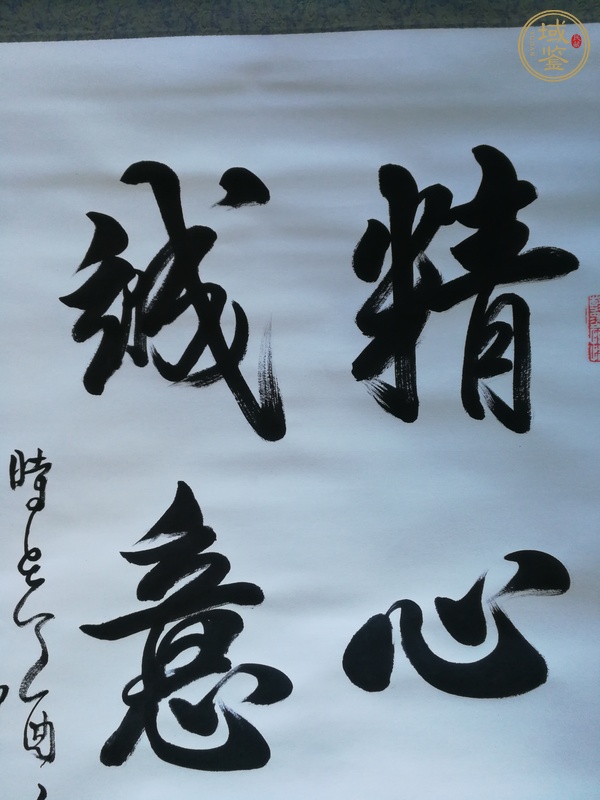 精心
誠意
時在丁酉
域鉴